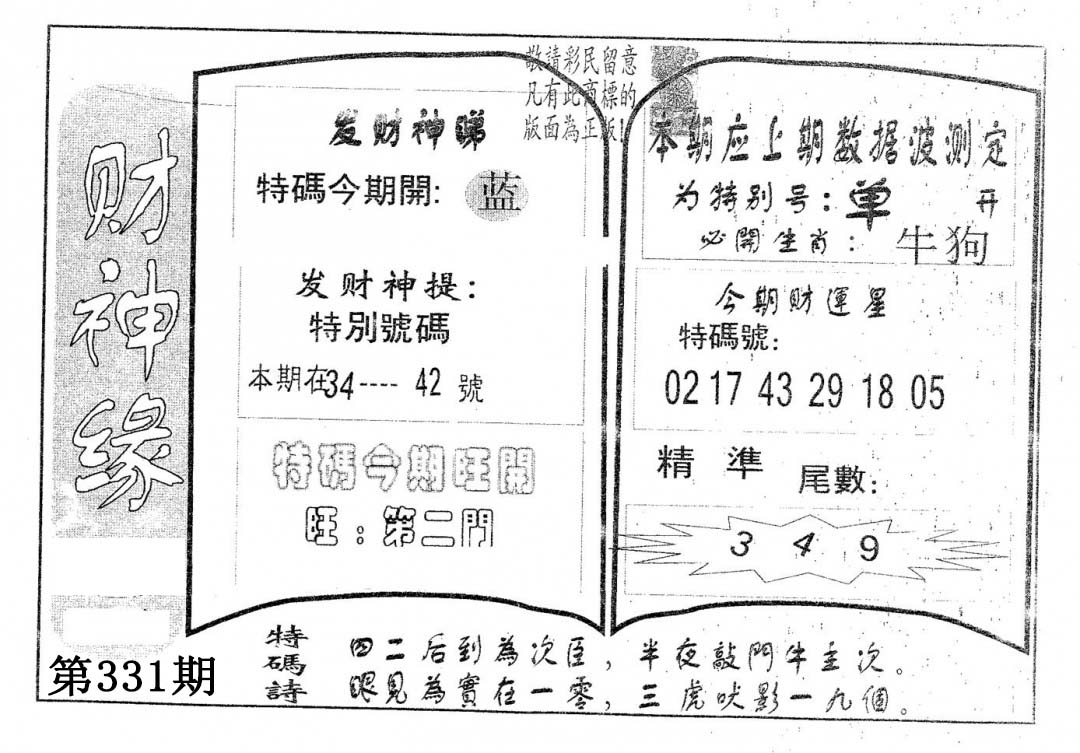 财神缘
第331期
敬請彩民留意
凡有此商標的
版面為正版!
发财神睇
特碼今期開: 蓝
发财神提:
特别號碼
本期在34---- 42 號
特碼今期旺開
旺:第二門
本期应上期数据波测定
为特别号:单 开
必開生肖: 牛狗
今期财運星
特碼號:
02 17 43 29 18 05
精準 尾數:
3 4 9
特碼詩
四二后到為次臣,半夜敲門牛主次。
眼見為實在一零,三虎吠影一九個。